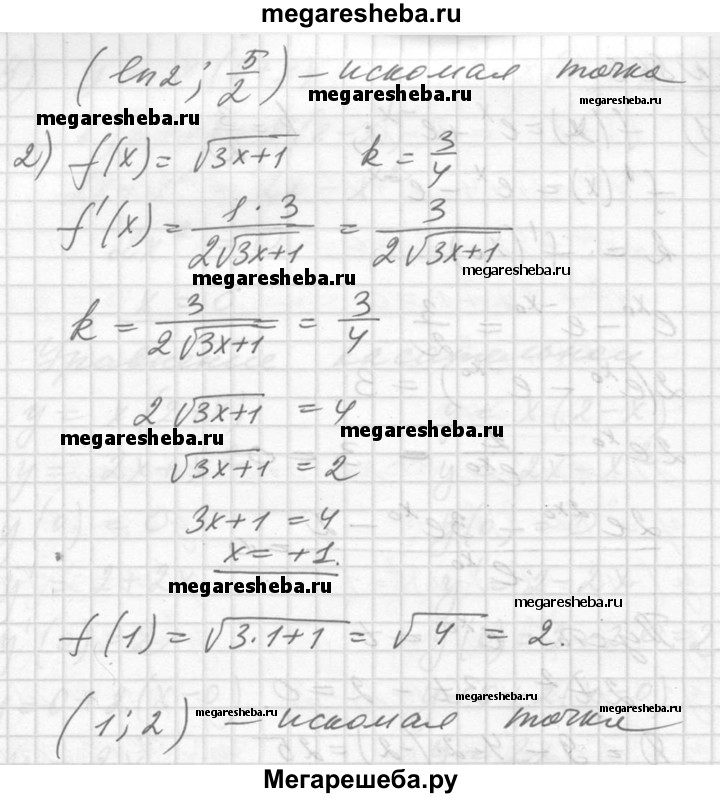 megaresheba.ru
(ln2; 5/2) – искомая точка
megaresheba.ru
megaresheba.ru
megaresheba.ru
2) f(x) = √(3x+1)   k = 3/4
f'(x) = (1·3)/(2√(3x+1)) = 3/(2√(3x+1))
megaresheba.ru
megaresheba.ru
k = 3/(2√(3x+1)) = 3/4
2√(3x+1) = 4
megaresheba.ru
megaresheba.ru
√(3x+1) = 2
3x+1 = 4
x = +1.
megaresheba.ru
megaresheba.ru
f(1) = √(3·1+1) = √4 = 2.
megaresheba.ru
(1; 2) – искомая точка
megaresheba.ru
megaresheba.ru
Мегарешеба.ру